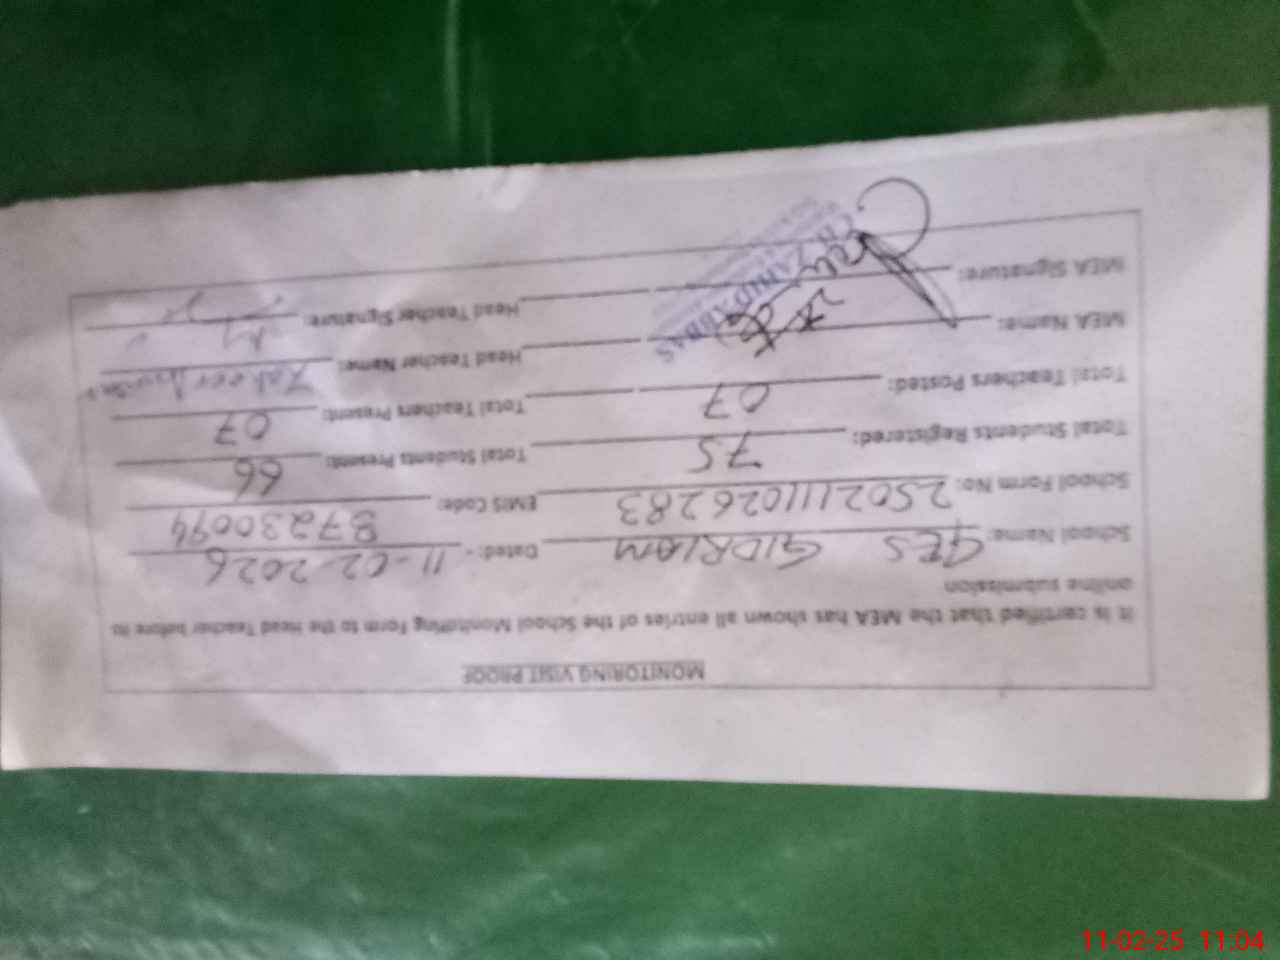 MONITORING VISIT PROOF
It is certified that the MEA has shown all entries of the School Monitoring Form to the Head Teacher before its
online submission
School Name: GES GIDRIAM Dated: - 11-02-2026
School Form No: 2502111026283 EMIS Code: 37230094
Total Students Registered: 75 Total Students Present: 66
Total Teachers Posted: 07 Total Teachers Present: 07
MEA Name: Head Teacher Name:
MEA Signature: Head Teacher Signature:
ZAHID ABBAS
11-02-25 11:04